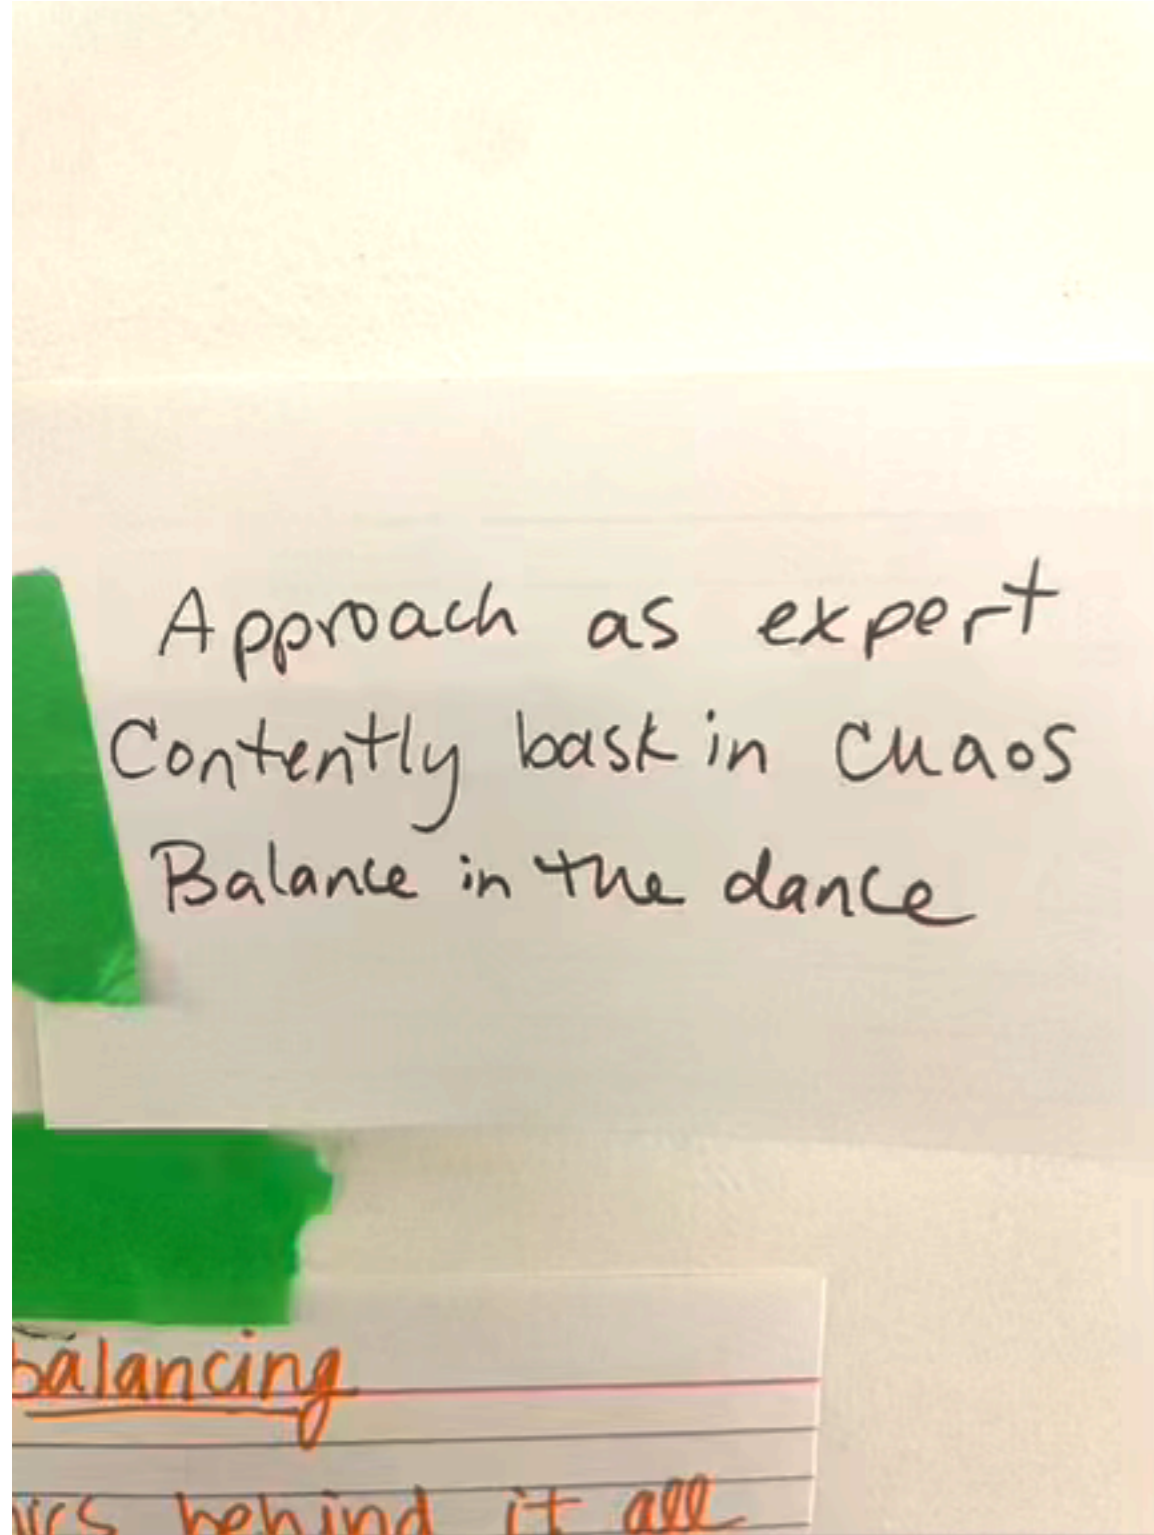 Approach as expert
Contently bask in chaos
Balance in the dance
balancing
behind it all